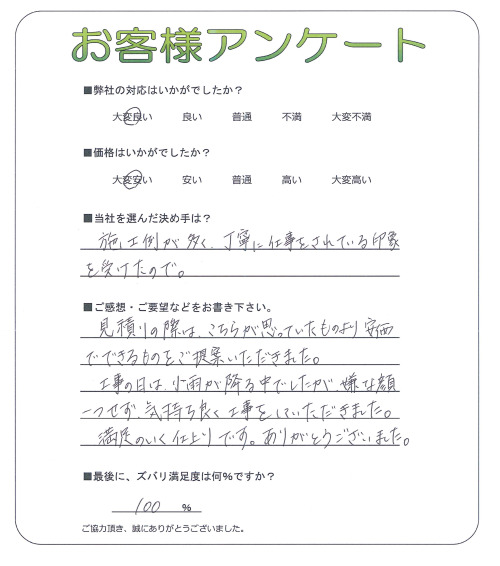 お客様アンケート
■弊社の対応はいかがでしたか？
大変良い 良い 普通 不満 大変不満
■価格はいかがでしたか？
大変安い 安い 普通 高い 大変高い
■当社を選んだ決め手は？
施工例が多く、丁寧に仕事をされている印象
を受けたので。
■ご感想・ご要望などをお書き下さい。
見積りの際は、こちらが思っていたものより安価
でできるものをご提案いただきました。
工事の日は、小雨が降る中でしたが嫌な顔
一つせず、気持ち良く工事をしていただきました。
満足のいく仕上りです。ありがとうございました。
■最後に、ズバリ満足度は何%ですか？
100 %
ご協力頂き、誠にありがとうございました。